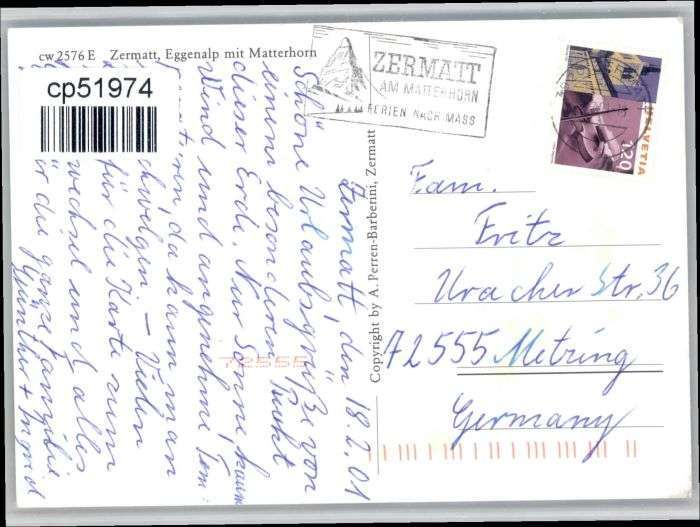 cw 2576 E Zermatt, Eggenalp mit Matterhorn
cp51974
ZERMATT
AM MATTERHORN
FERIEN NACH MASS
HELVETIA
120
Zermatt, den 18.2.01
Schöne Urlaubsgrüße von
einem besonderen Punkt
dieser Erde. Nur Sonne, kaum
Wind und angenehme Tem-
da kann man
schwelgen – Vielen
für die Karte zum
wechsel und alles
die ganze Familie
Günther + Ingrid
Copyright by A. Perren-Barberini, Zermatt
Fam.
Fritz
Uracher Str. 36
72555 Metzing
Germany
72555